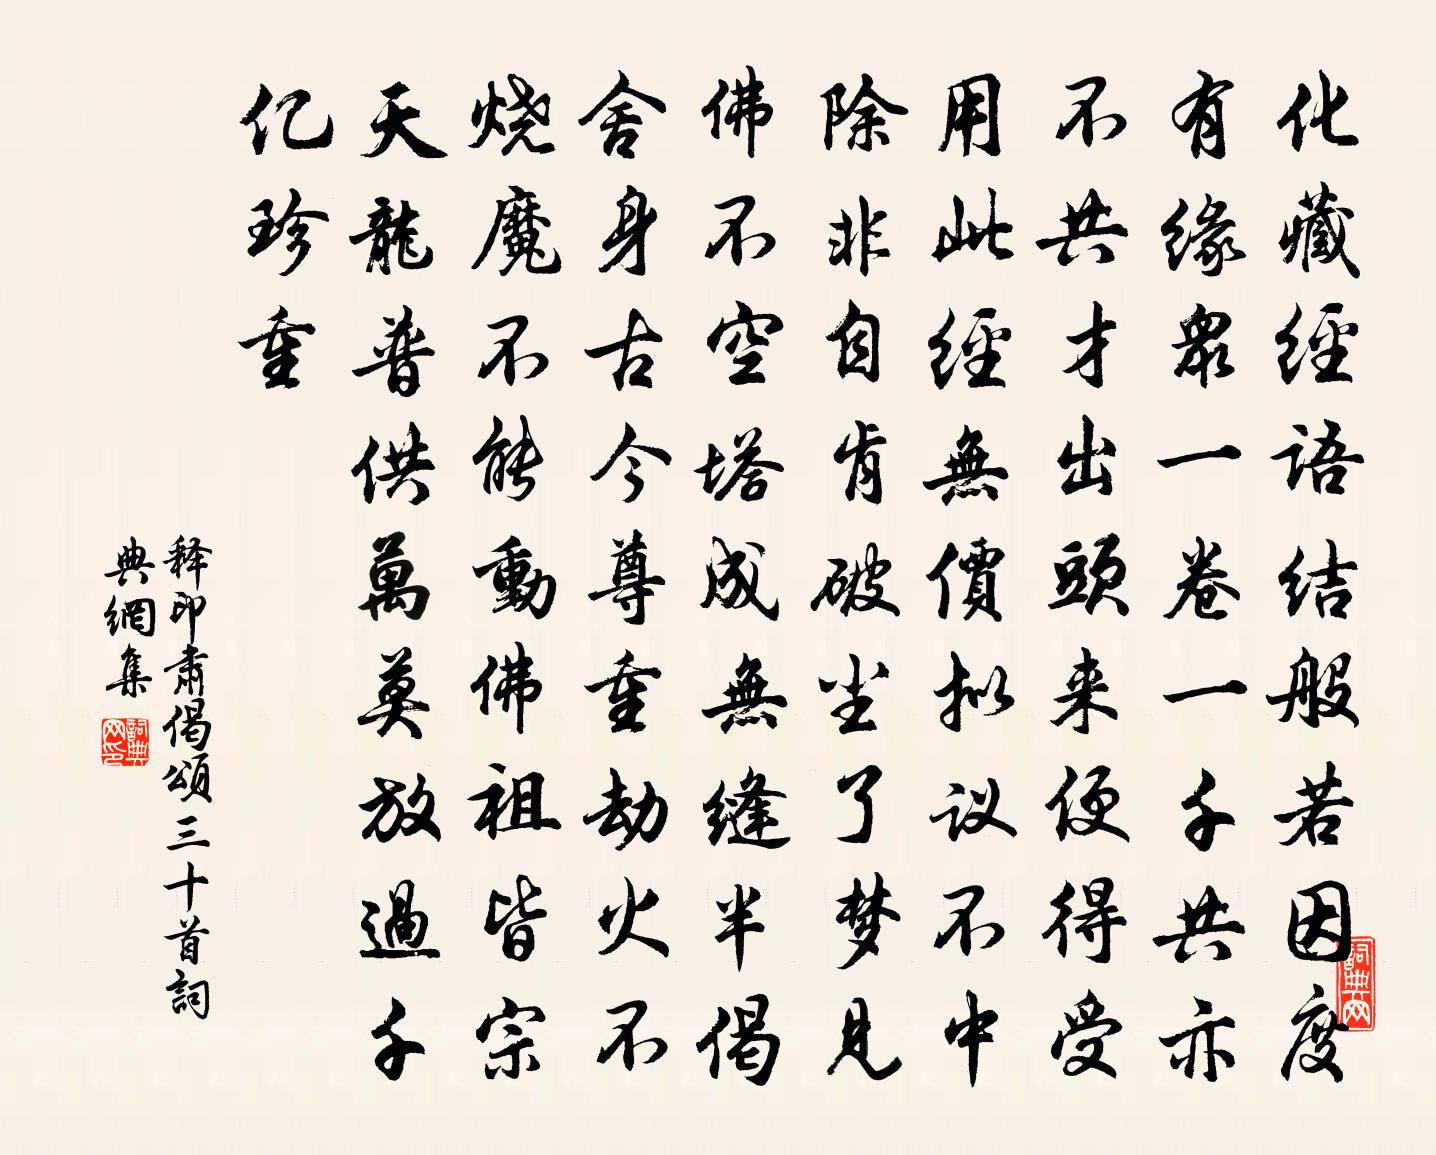 化藏經語结般若因度
有緣衆一卷一千共亦
不共才出頭来便得受
用此經無價拟议不中
除非自肯破尘了梦見
佛不空塔成無縫半偈
舍身古今尊重劫火不
烧魔不能動佛祖皆宗
天龍普供萬莫放過千
亿珍重
释印肃偈頌三十首詞
典網集
詞典网
詞典网印